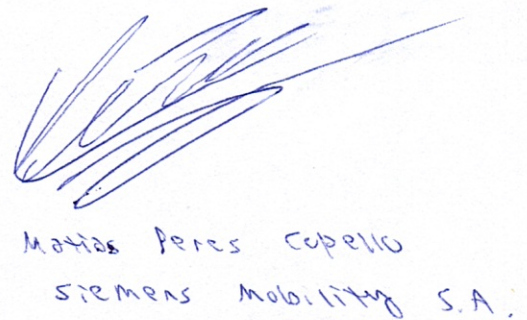 Matias Peres Copello
Siemens Mobility S.A.